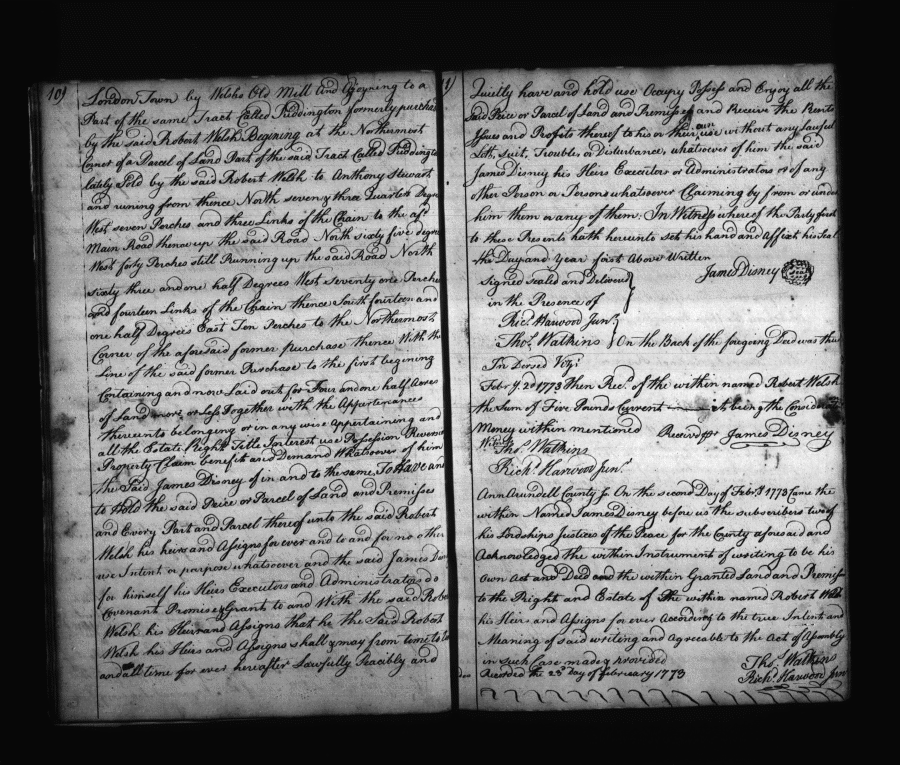 10)
London Town by Welshs Old Mill and Ajoyning to a
Part of the same Tract Called Piddington formerly purchas
by the said Robert Welsh Begining at the Northermost
Corner of a Parcel of Land Part of the said Tract Called Piddingto
lately Sold by the said Robert Welsh to Anthony Stewart
and runing from thence North seven & three Quarter Degre
West seven Perches and three Links of the Chain to the afs
Main Road thence up the said Road North sixty five degre
West forty Perches still Running up the said Road North
sixty three and one half Degrees West seventy one Perche
and fourteen Links of the Chain thence South fourteen and
one half Degrees East Ten Perches to the Northermost
Corner of the aforesaid former purchase thence With the
Line of the said former Purchase to the first begining
Containing and now Laid out for Four and one half Acres
of Land more or less Together with the Appertenances
thereunto belonging or in any wise Appertaining and
all the Estate Right Title Interest use Possession Reversi
Property Claim benefit and Demand Whatsoever of him
the Said James Disney of in and to the same To Have and
to Hold the said Peice or Parcel of Land and Premisses
and Every Part and Parcel thereof unto the said Robert
Welsh his heirs and Assigns for ever and to and for no other
use Intent or purpose whatsoever and the said James Disn
for himself his Heirs Executors and Administrators do
Covenant Promise & Grant to and With the said Rober
Welsh his Heirs and Assigns that he the Said Robert
Welsh his Heirs and Assigns shall & may from time to ti
and all time for ever hereafter Lawfully Peacibly and
Quietly have and hold use Occupy Possess and Enjoy all the
said Peice or Parcel of Land and Premisses and Receive the Rents
Issues and Profits thereof to his or their own use without any Lawful
Lett, Suit, Trouble or Disturbance, whatsoever of him the said
James Disney his Heirs Executors or Administrators or of any
other Person or Persons whatsoever Claiming by from or under
him them or any of them. In Witness whereof the Party first
to these Presents hath hereunto set his hand and Affixt his Seal
the Day and Year first Above Written
James Disney
Signed sealed and Deliverd
in the Presence of
Ric.d Harwood Jun.r
Tho.s Watkins } On the Back of the foregoing Deed was thus
In Dorsed Viz.
Feb.ry 2.d 1773 then Rec.d of the within named Robert Welsh
the Sum of Five Pounds Current it being the Consider
Money within mentioned Received p.r James Disney
Witness
Tho.s Watkins
Rich.d Harwood Jun.r
Ann Arundell County ss. On the second Day of Feb.ry 1773 Came the
within Named James Disney before us the subscribers two of
his Lordships Justices of the Peace for the County aforesaid and
Acknowledged the within Instrument of writing to be his
own Act and Deed and the within Granted Land and Premiss
to the Right and Estate of the within named Robert Welsh
his Heirs and Assigns for ever According to the true Intent and
Meaning of said writing and Agreable to the Act of Assembly
in such Case made & provided
Tho.s Watkins
Recorded the 23.d Day of February 1773
Rich.d Harwood Jun